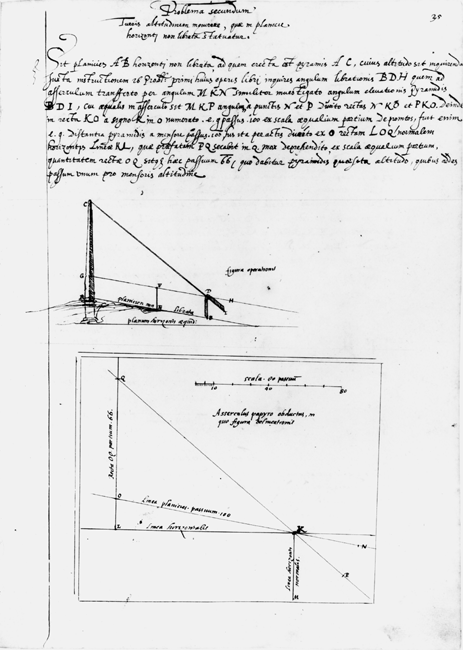 Problema secundum.
Turris altitudinem mensurare, quæ in planicie
horizonti non librata sit statuatur.
35
Sit planicies A B horizonti non librata, ad quam erecta sit pyramis A C, cuius altitudo sit inquirenda
iuxta instructionem 26 probl. primi huius operis libri, inquires angulum librationis B D H quem ad
asserculum transferto per angulum M K N similiter inuestigato angulum eleuationis pyramidis
B D I, cui æqualis in asserculo sit M K P angulus, a punctis N et P ducito rectas N K O et P K Q. Deinde
in recta K O a signo K in O numerato e. g. passus 100 ex scala æqualium partium depromptos, fuit enim
e. g. distantia pyramidis a mensore passus 100
per O rectam L O Q normalem
horizontis lineæ K L, quæ
P Q secabit in Q mox deprehendito ex scala æqualium partium,
quantitatem rectæ O Q
hæc passuum 66, quo dabitur pyramidis quæsita altitudo, quibus addes
passum unum pro mensoris altitudine
C
figura operationis
G
V
D
H
planicies non
librata
I
A
B
planum horizonti æquid:
Q
scala 80 passuum
10
40
80
Asserculus papyro obductus, in
quo figura delineationis
Recta O Q passuum 66.
O
linea planiciei passuum 100
L
linea horizontalis
K
N
linea horizonti
normalis.
P
M